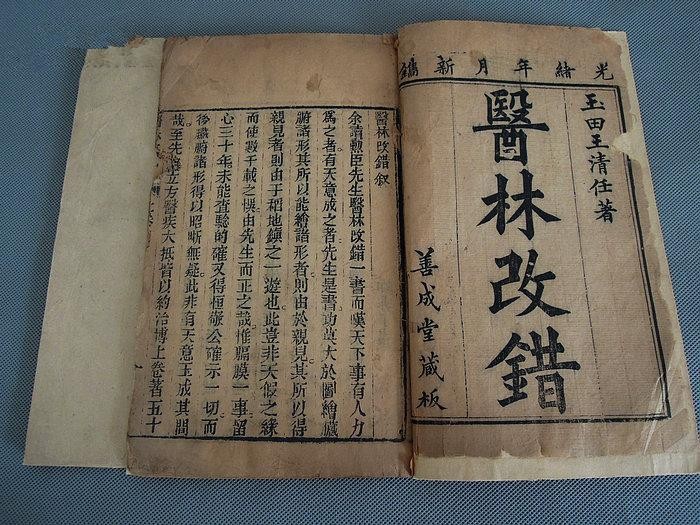 光緒年月新鐫
玉田王清任著
醫林改錯
善成堂藏板
醫林改錯叙
余讀勲臣先生醫林改錯一書而嘆天下事有人力
爲之者有天意成之者先生是書功莫大於圖繪臟
腑諸形其所以能繪諸形者則由於親見其所以得
親見者則由于稻地鎮之一遊也此豈非天假之緣
而使數千載之悞由先生而正之哉惟膈膜一事留
心三十年未能查驗的確又得恆敬公確示一切而
後臟腑諸形得以昭晰無疑此非有天意玉成其間
哉至先生立方醫疾大抵皆以約治博上卷著五十